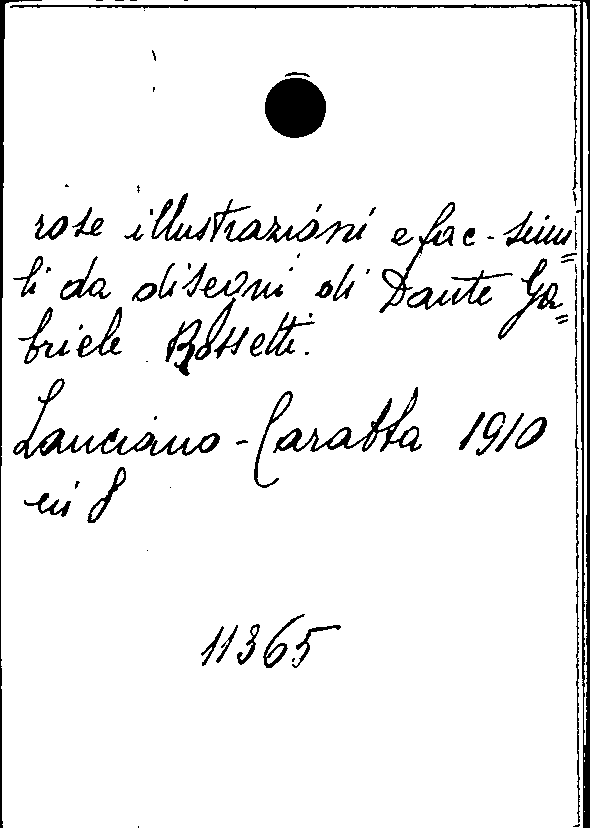 rose illustrazioni e fac-simi=
li da disegni di Dante Ga=
briele Rossetti.
Lanciano - Carabba 1910
in 8
11365